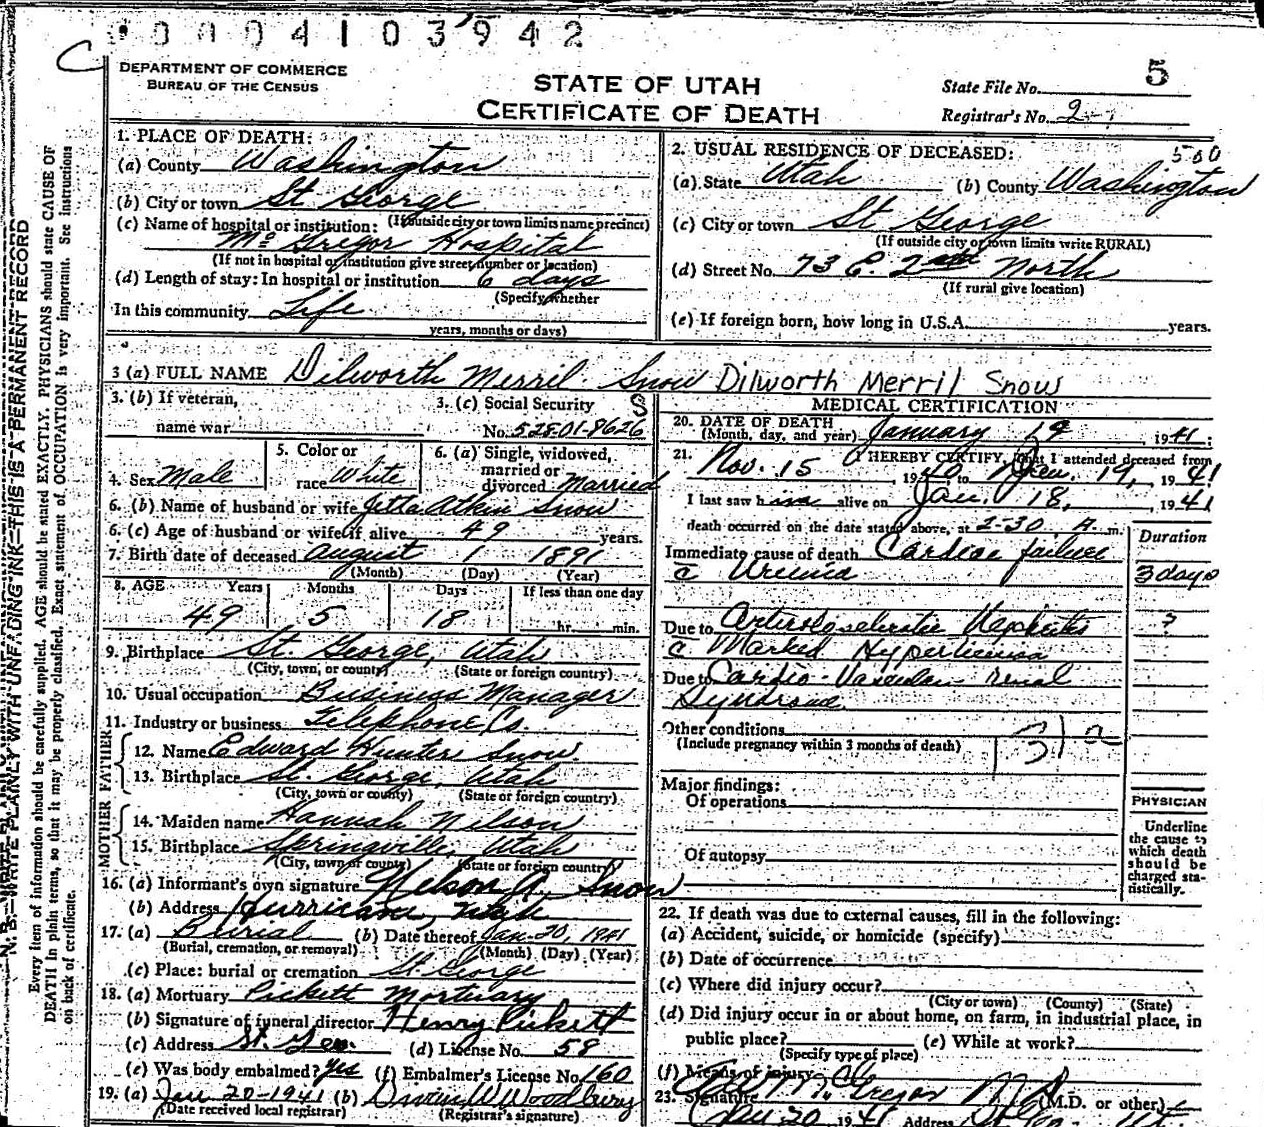 0004103942
C
DEPARTMENT OF COMMERCE
BUREAU OF THE CENSUS
STATE OF UTAH
CERTIFICATE OF DEATH
State File No. 5
Registrar's No. 2
N. B.—WRITE PLAINLY WITH UNFADING INK—THIS IS A PERMANENT RECORD
Every item of information should be carefully supplied. AGE should be stated EXACTLY. PHYSICIANS should state CAUSE OF
DEATH in plain terms, so that it may be properly classified. Exact statement of OCCUPATION is very important. See instructions
on back of certificate.
1. PLACE OF DEATH:
(a) County Washington
(b) City or town St George
(If outside city or town limits name precinct)
(c) Name of hospital or institution:
Mc Gregor Hospital
(If not in hospital or institution give street number or location)
(d) Length of stay: In hospital or institution 6 days
(Specify whether
In this community Life
years, months or days)
2. USUAL RESIDENCE OF DECEASED: 500
(a) State Utah (b) County Washington
(c) City or town St George
(If outside city or town limits write RURAL)
(d) Street No. 73 E. 2nd North
(If rural give location)
(e) If foreign born, how long in U.S.A. years.
3 (a) FULL NAME Dilworth Merril Snow Dilworth Merril Snow
3. (b) If veteran,
name war
3. (c) Social Security S
No. 528-01-8626
4. Sex Male
5. Color or
race White
6. (a) Single, widowed,
married or
divorced Married
6. (b) Name of husband or wife Jetta Atkin Snow
6. (c) Age of husband or wife if alive 49 years.
7. Birth date of deceased August 1 1891
(Month) (Day) (Year)
8. AGE Years Months Days If less than one day
49 5 18 hr. min.
9. Birthplace St. George, Utah
(City, town, or county) (State or foreign country)
10. Usual occupation Business Manager
11. Industry or business Telephone Co.
FATHER
12. Name Edward Hunter Snow
13. Birthplace St. George, Utah
(City, town or county) (State or foreign country)
MOTHER
14. Maiden name Hannah Nelson
15. Birthplace Springville, Utah
(City, town or county) (State or foreign country)
16. (a) Informant's own signature Nelson A. Snow
(b) Address Hurricane, Utah
17. (a) Burial (b) Date thereof Jan-20, 1941
(Burial, cremation, or removal) (Month) (Day) (Year)
(c) Place: burial or cremation St. George
18. (a) Mortuary Pickett Mortuary
(b) Signature of funeral director Henry Pickett
(c) Address St. Geo. (d) License No. 58
(e) Was body embalmed? Yes (f) Embalmer's License No. 160
19. (a) Jan 20-1941 (b) Woodbury
(Date received local registrar) (Registrar's signature)
MEDICAL CERTIFICATION
20. DATE OF DEATH
(Month, day, and year) January 19, 1941;
21. I HEREBY CERTIFY, that I attended deceased from
Nov. 15, 1940, to Jan. 19, 1941
I last saw him alive on Jan. 18, 1941
death occurred on the date stated above, at 2-30 A. m. Duration
Immediate cause of death Cardiac failure
c̄ Uremia 3 days
Due to Arteriosclerotic Nephritis ?
c̄ Marked Hypertension
Due to Cardio-Vascular renal
Syndrome
Other conditions
(Include pregnancy within 3 months of death)
131 a
Major findings:
Of operations
Of autopsy
PHYSICIAN
Underline
the cause to
which death
should be
charged sta-
tistically.
22. If death was due to external causes, fill in the following:
(a) Accident, suicide, or homicide (specify)
(b) Date of occurrence
(c) Where did injury occur?
(City or town) (County) (State)
(d) Did injury occur in or about home, on farm, in industrial place, in
public place? (e) While at work?
(Specify type of place)
(f) Means of injury
23. Signature McGregor M.D. (M.D. or other)
Jan 20 1941 Address St. Geo. Ut.